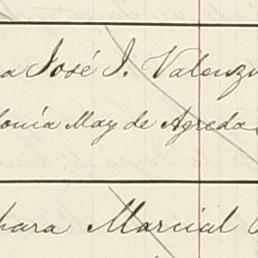 a José I. Valenzu
onia May de Agreda
hara Marcial